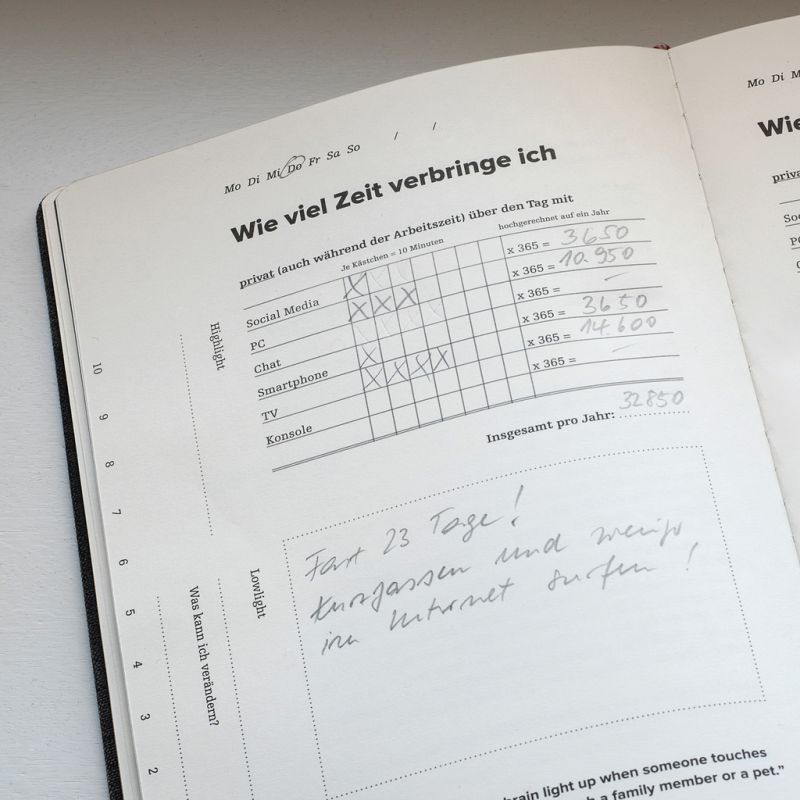 Mo Di Mi Do Fr Sa So / /
Wie viel Zeit verbringe ich
privat (auch während der Arbeitszeit) über den Tag mit
Je Kästchen = 10 Minuten
hochgerechnet auf ein Jahr
Social Media X x 365 = 3650
PC X X X x 365 = 10.950
Chat x 365 = –
Smartphone X x 365 = 3650
TV X X X X x 365 = 14.600
Konsole x 365 = –
Insgesamt pro Jahr: 32850
Fast 23 Tage!
kurzfassen und wenigr
im Internet surfen!
Highlight
Lowlight
Was kann ich verändern?
10
9
8
7
6
5
4
3
2
brain light up when someone touches
a family member or a pet."
Mo Di M
Wie
priva
Soc
PC